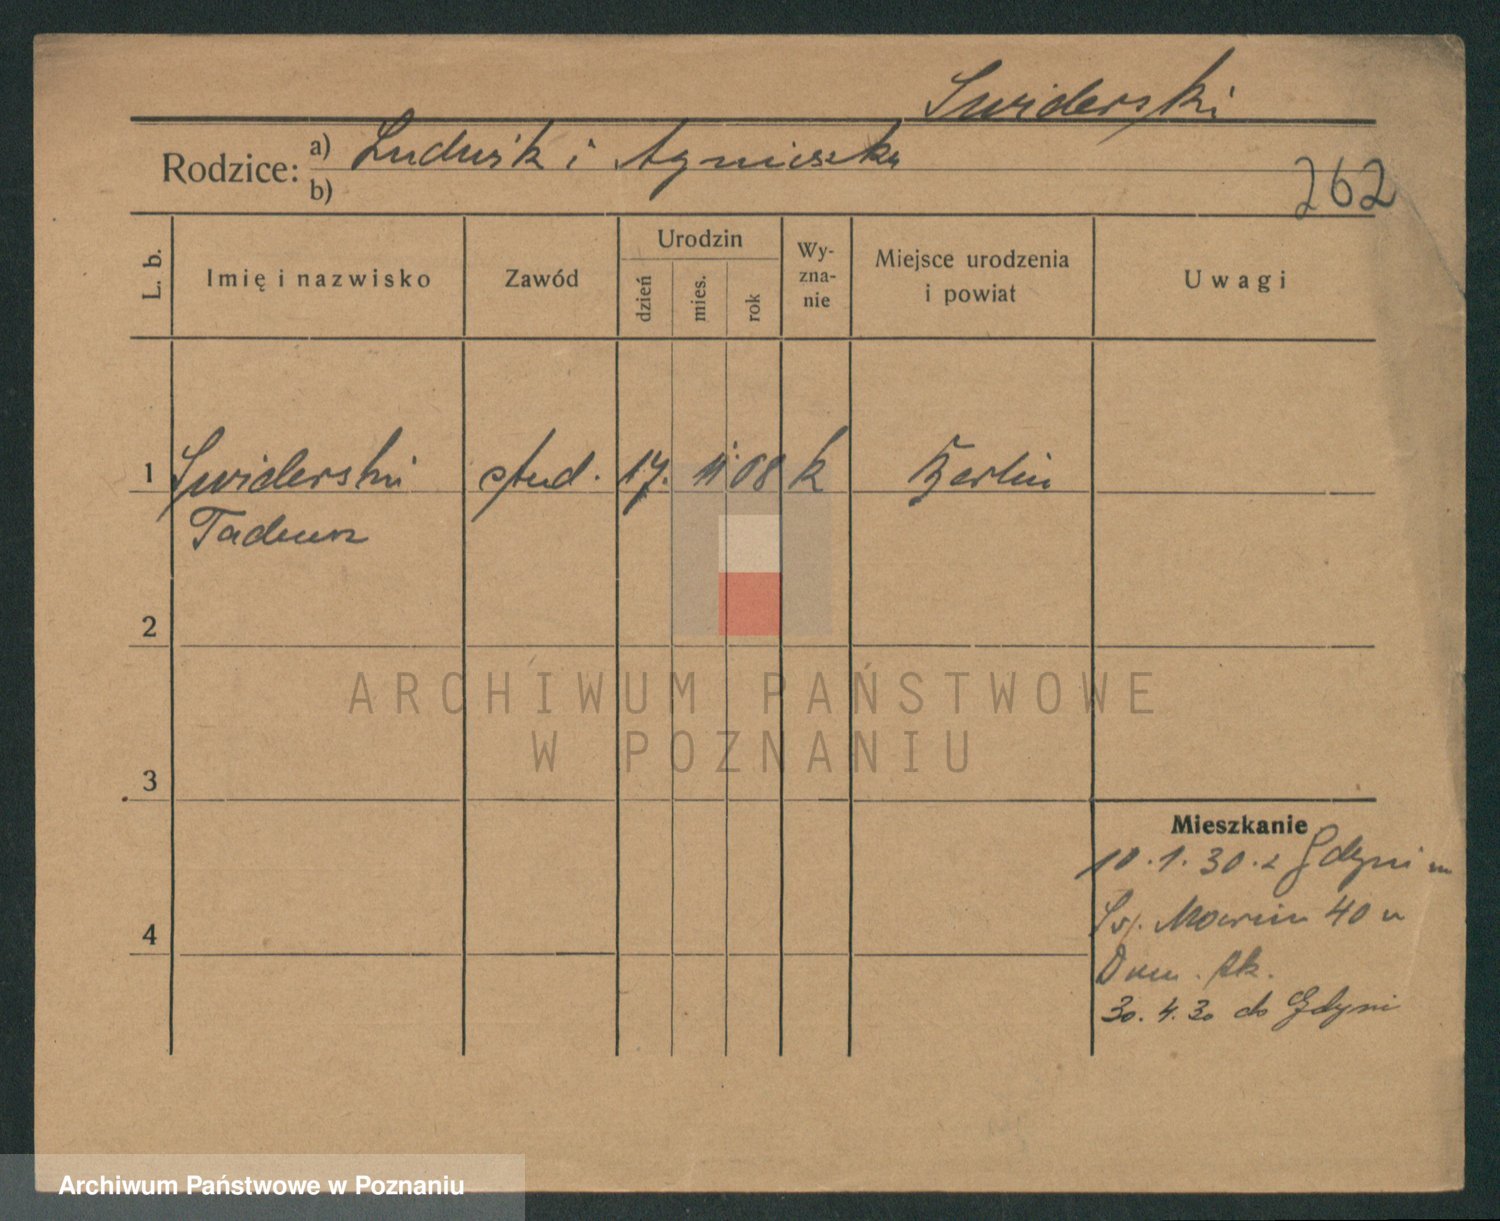 Swiderski
Rodzice: a) Ludwik i Agnieszka
b)
262
L. b.
Imię i nazwisko
Zawód
Urodzin
dzień
mies.
rok
Wy-
zna-
nie
Miejsce urodzenia
i powiat
Uwagi
1 Swiderski stud. 17. 11 08 k Berlin
Tadeusz
2
3
4
Mieszkanie
10.1.30. z Gdyni
Św. Marcin 40
Dom. Ak.
30.4.30 do Gdyni
ARCHIWUM PAŃSTWOWE
W POZNANIU
Archiwum Państwowe w Poznaniu